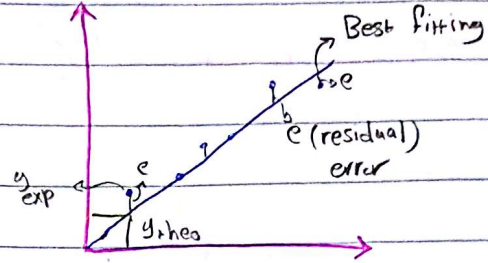 Best fitting
e
e (residual)
error
e
y exp
y theo